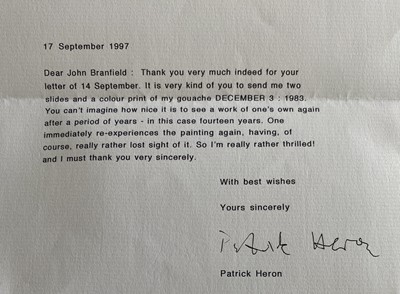 17 September 1997
Dear John Branfield : Thank you very much indeed for your
letter of 14 September. It is very kind of you to send me two
slides and a colour print of my gouache DECEMBER 3 : 1983.
You can't imagine how nice it is to see a work of one's own again
after a period of years - in this case fourteen years. One
immediately re-experiences the painting again, having, of
course, really rather lost sight of it. So I'm really rather thrilled!
and I must thank you very sincerely.
With best wishes
Yours sincerely
Patrick Heron
Patrick Heron